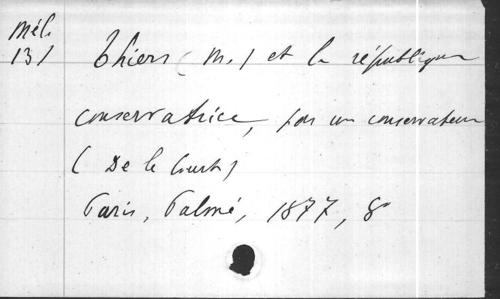 Mél.
131
Thiers (M.) et la république
conservatrice, par un conservateur
( De le Court)
Paris, Palmé, 1877, 8°